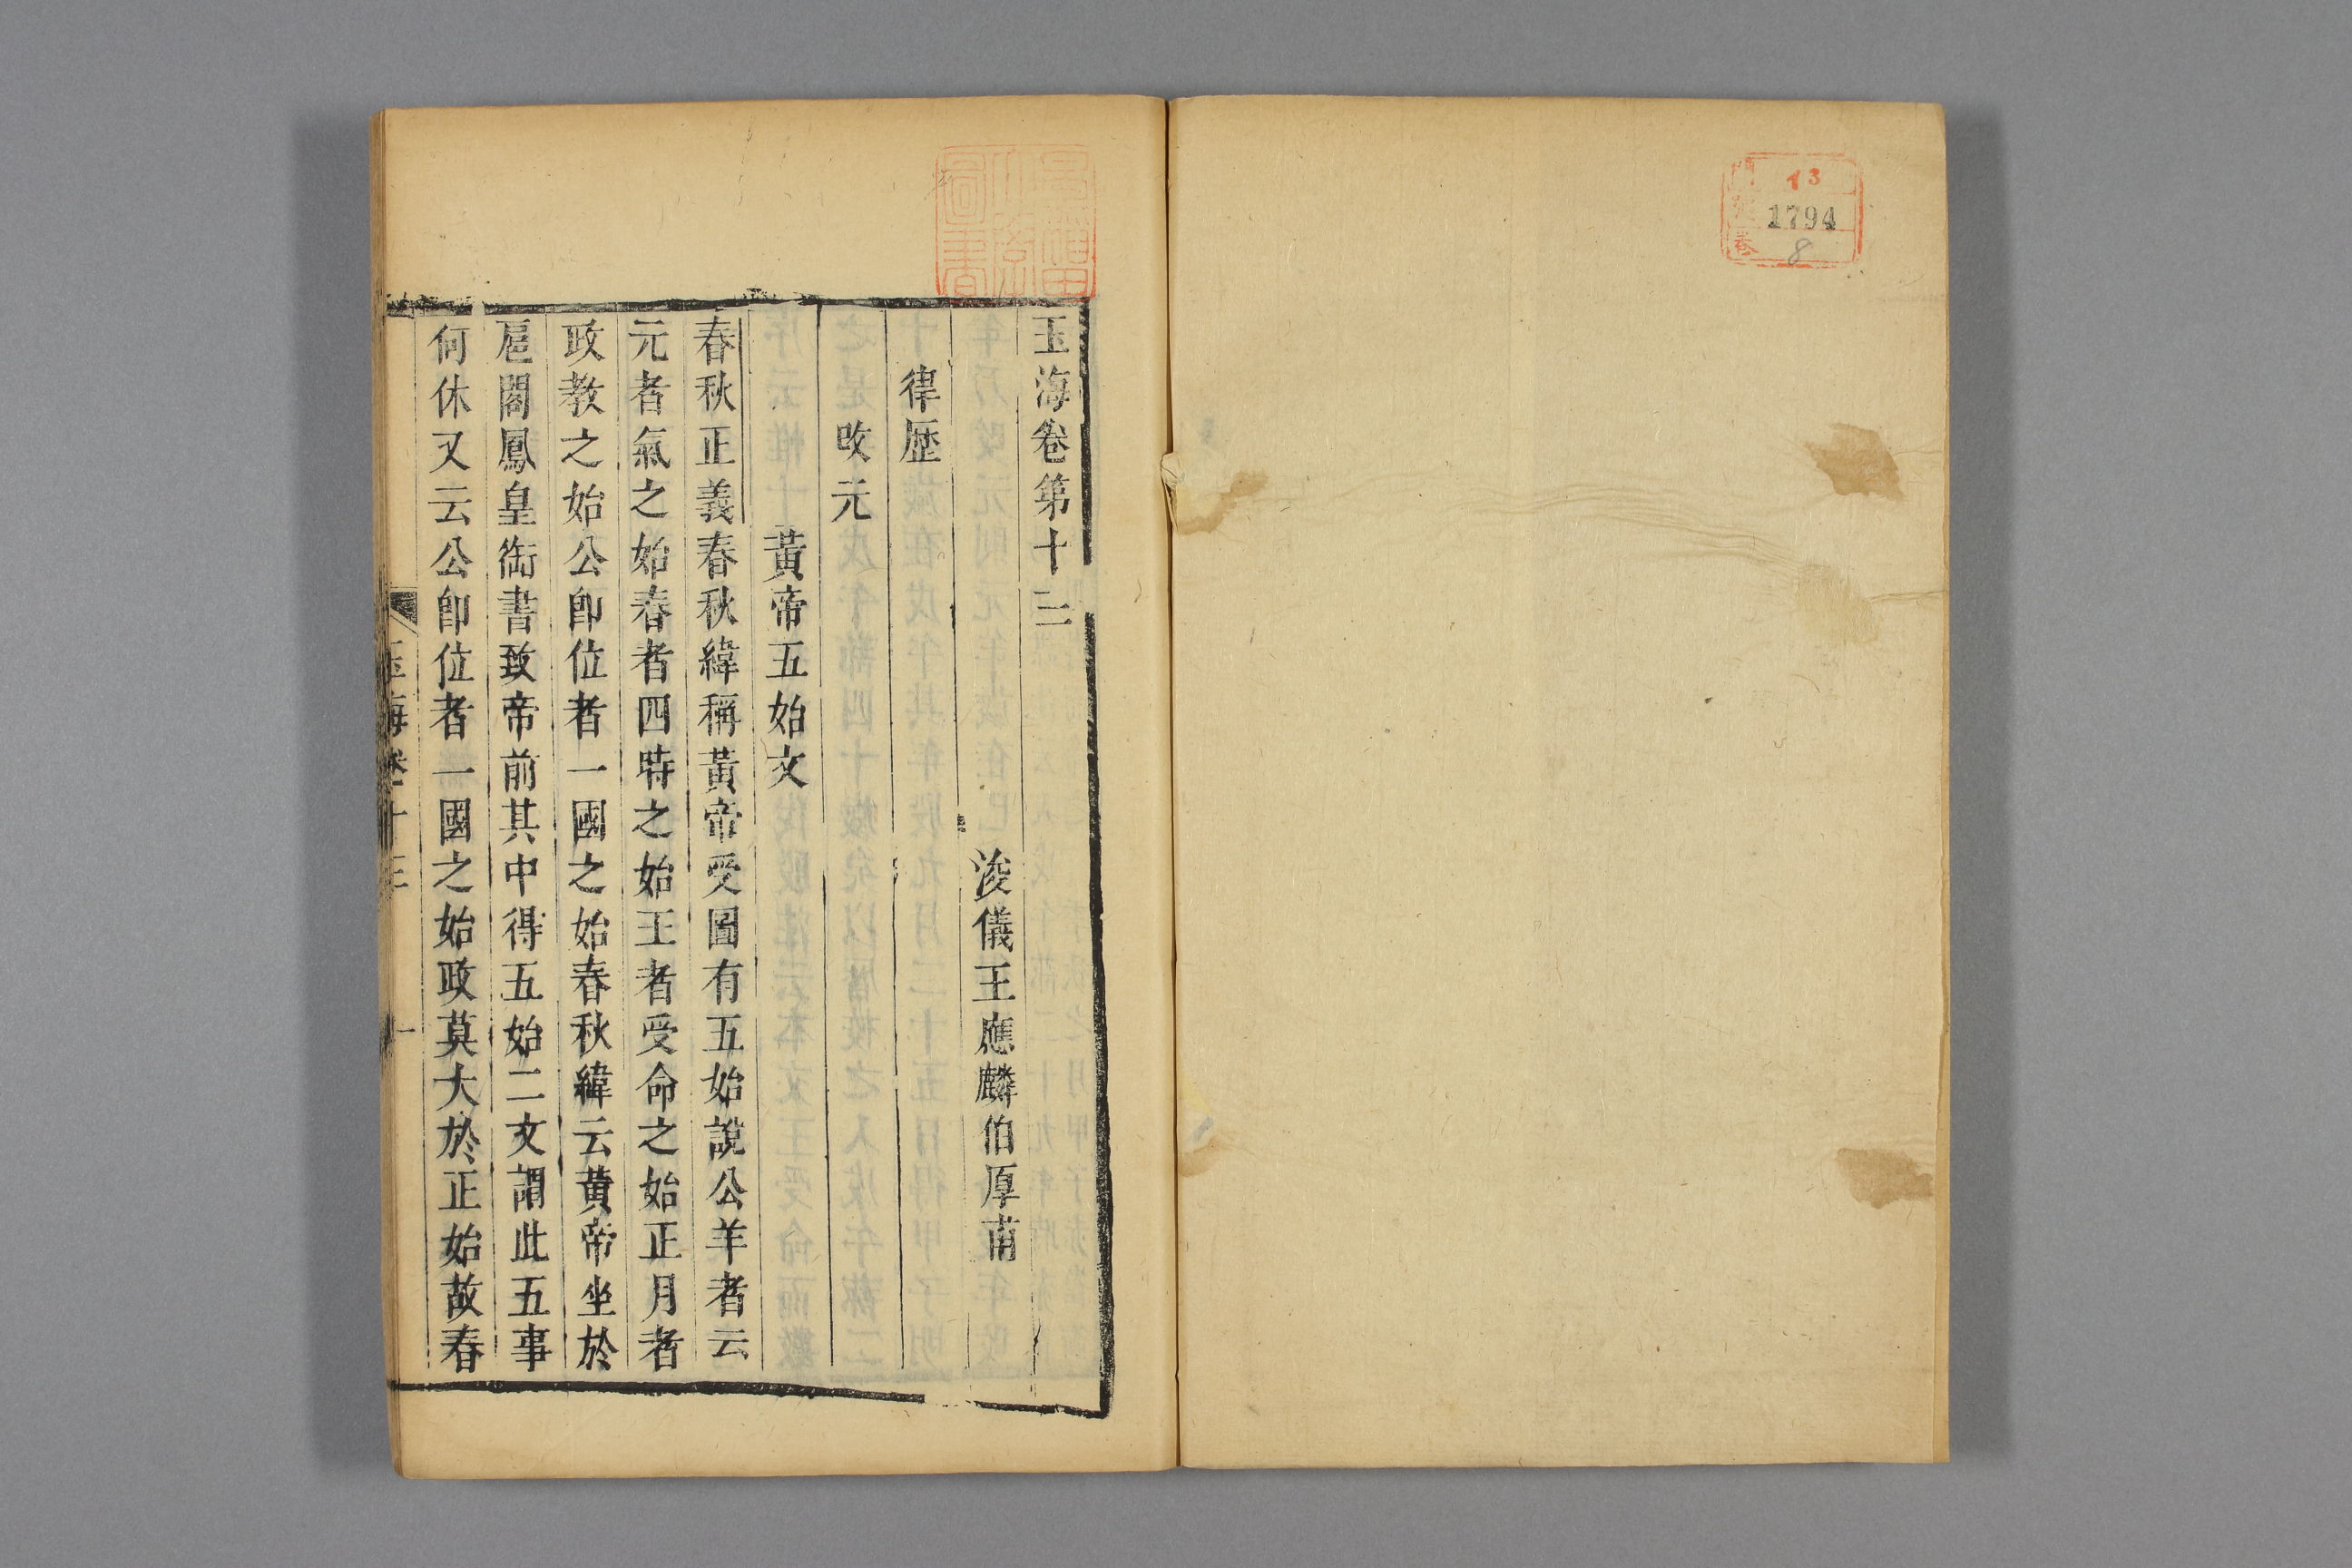 門
號
卷
13
1794
8
玉海卷第十三
浚儀王應麟伯厚甫
律歴
改元
黃帝五始文
春秋正義春秋緯稱黃帝受圖有五始說公羊者云
元者氣之始春者四時之始王者受命之始正月者
政教之始公卽位者一國之始春秋緯云黃帝坐於
扈閣鳳皇銜書致帝前其中得五始二文謂此五事
何休又云公卽位者一國之始政莫大於正始故春
玉海卷十三
一